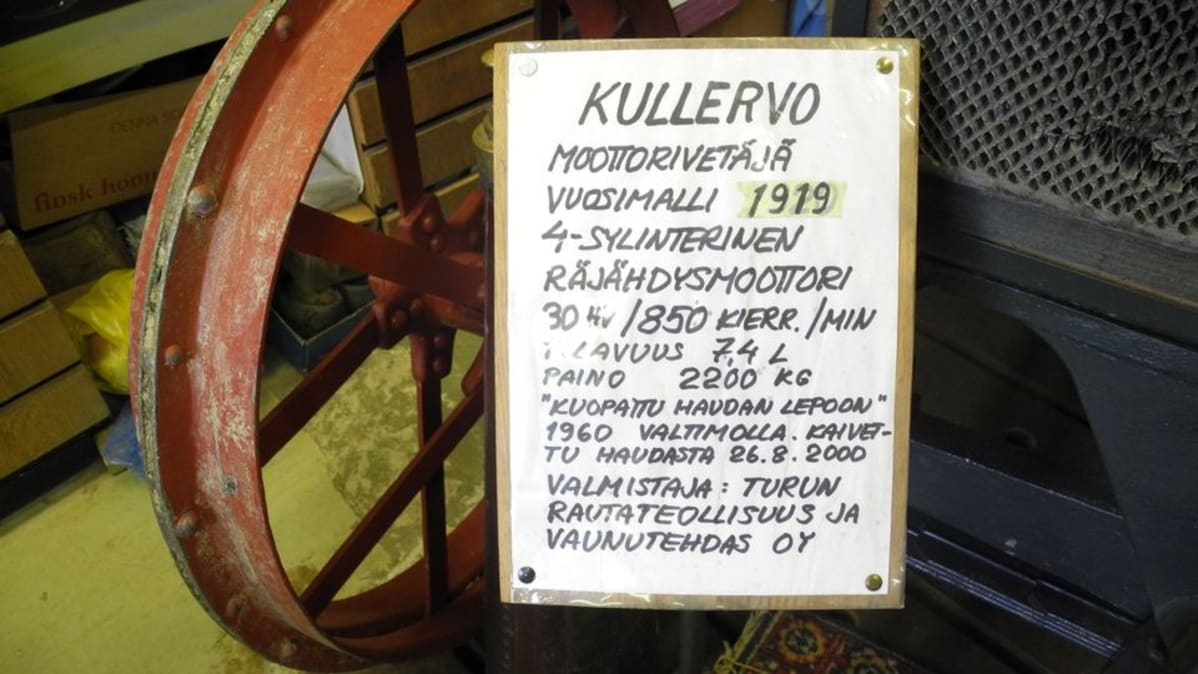 KULLERVO
MOOTTORIVETÄJÄ
VUOSIMALLI 1919
4-SYLINTERINEN
RÄJÄHDYSMOOTTORI
30 HV /850 KIERR./MIN
TILAVUUS 7,4 L
PAINO 2200 KG
"KUOPATTU HAUDAN LEPOON"
1960 VALTIMOLLA. KAIVET-
TU HAUDASTA 26.8.2000
VALMISTAJA: TURUN
RAUTATEOLLISUUS JA
VAUNUTEHDAS OY
DENNA
finsk